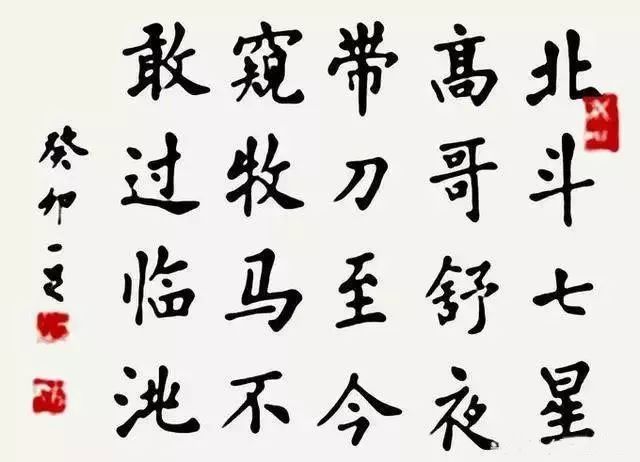 北斗七星
高哥舒夜
带刀至今
窺牧马不
敢过临洮
癸卯一